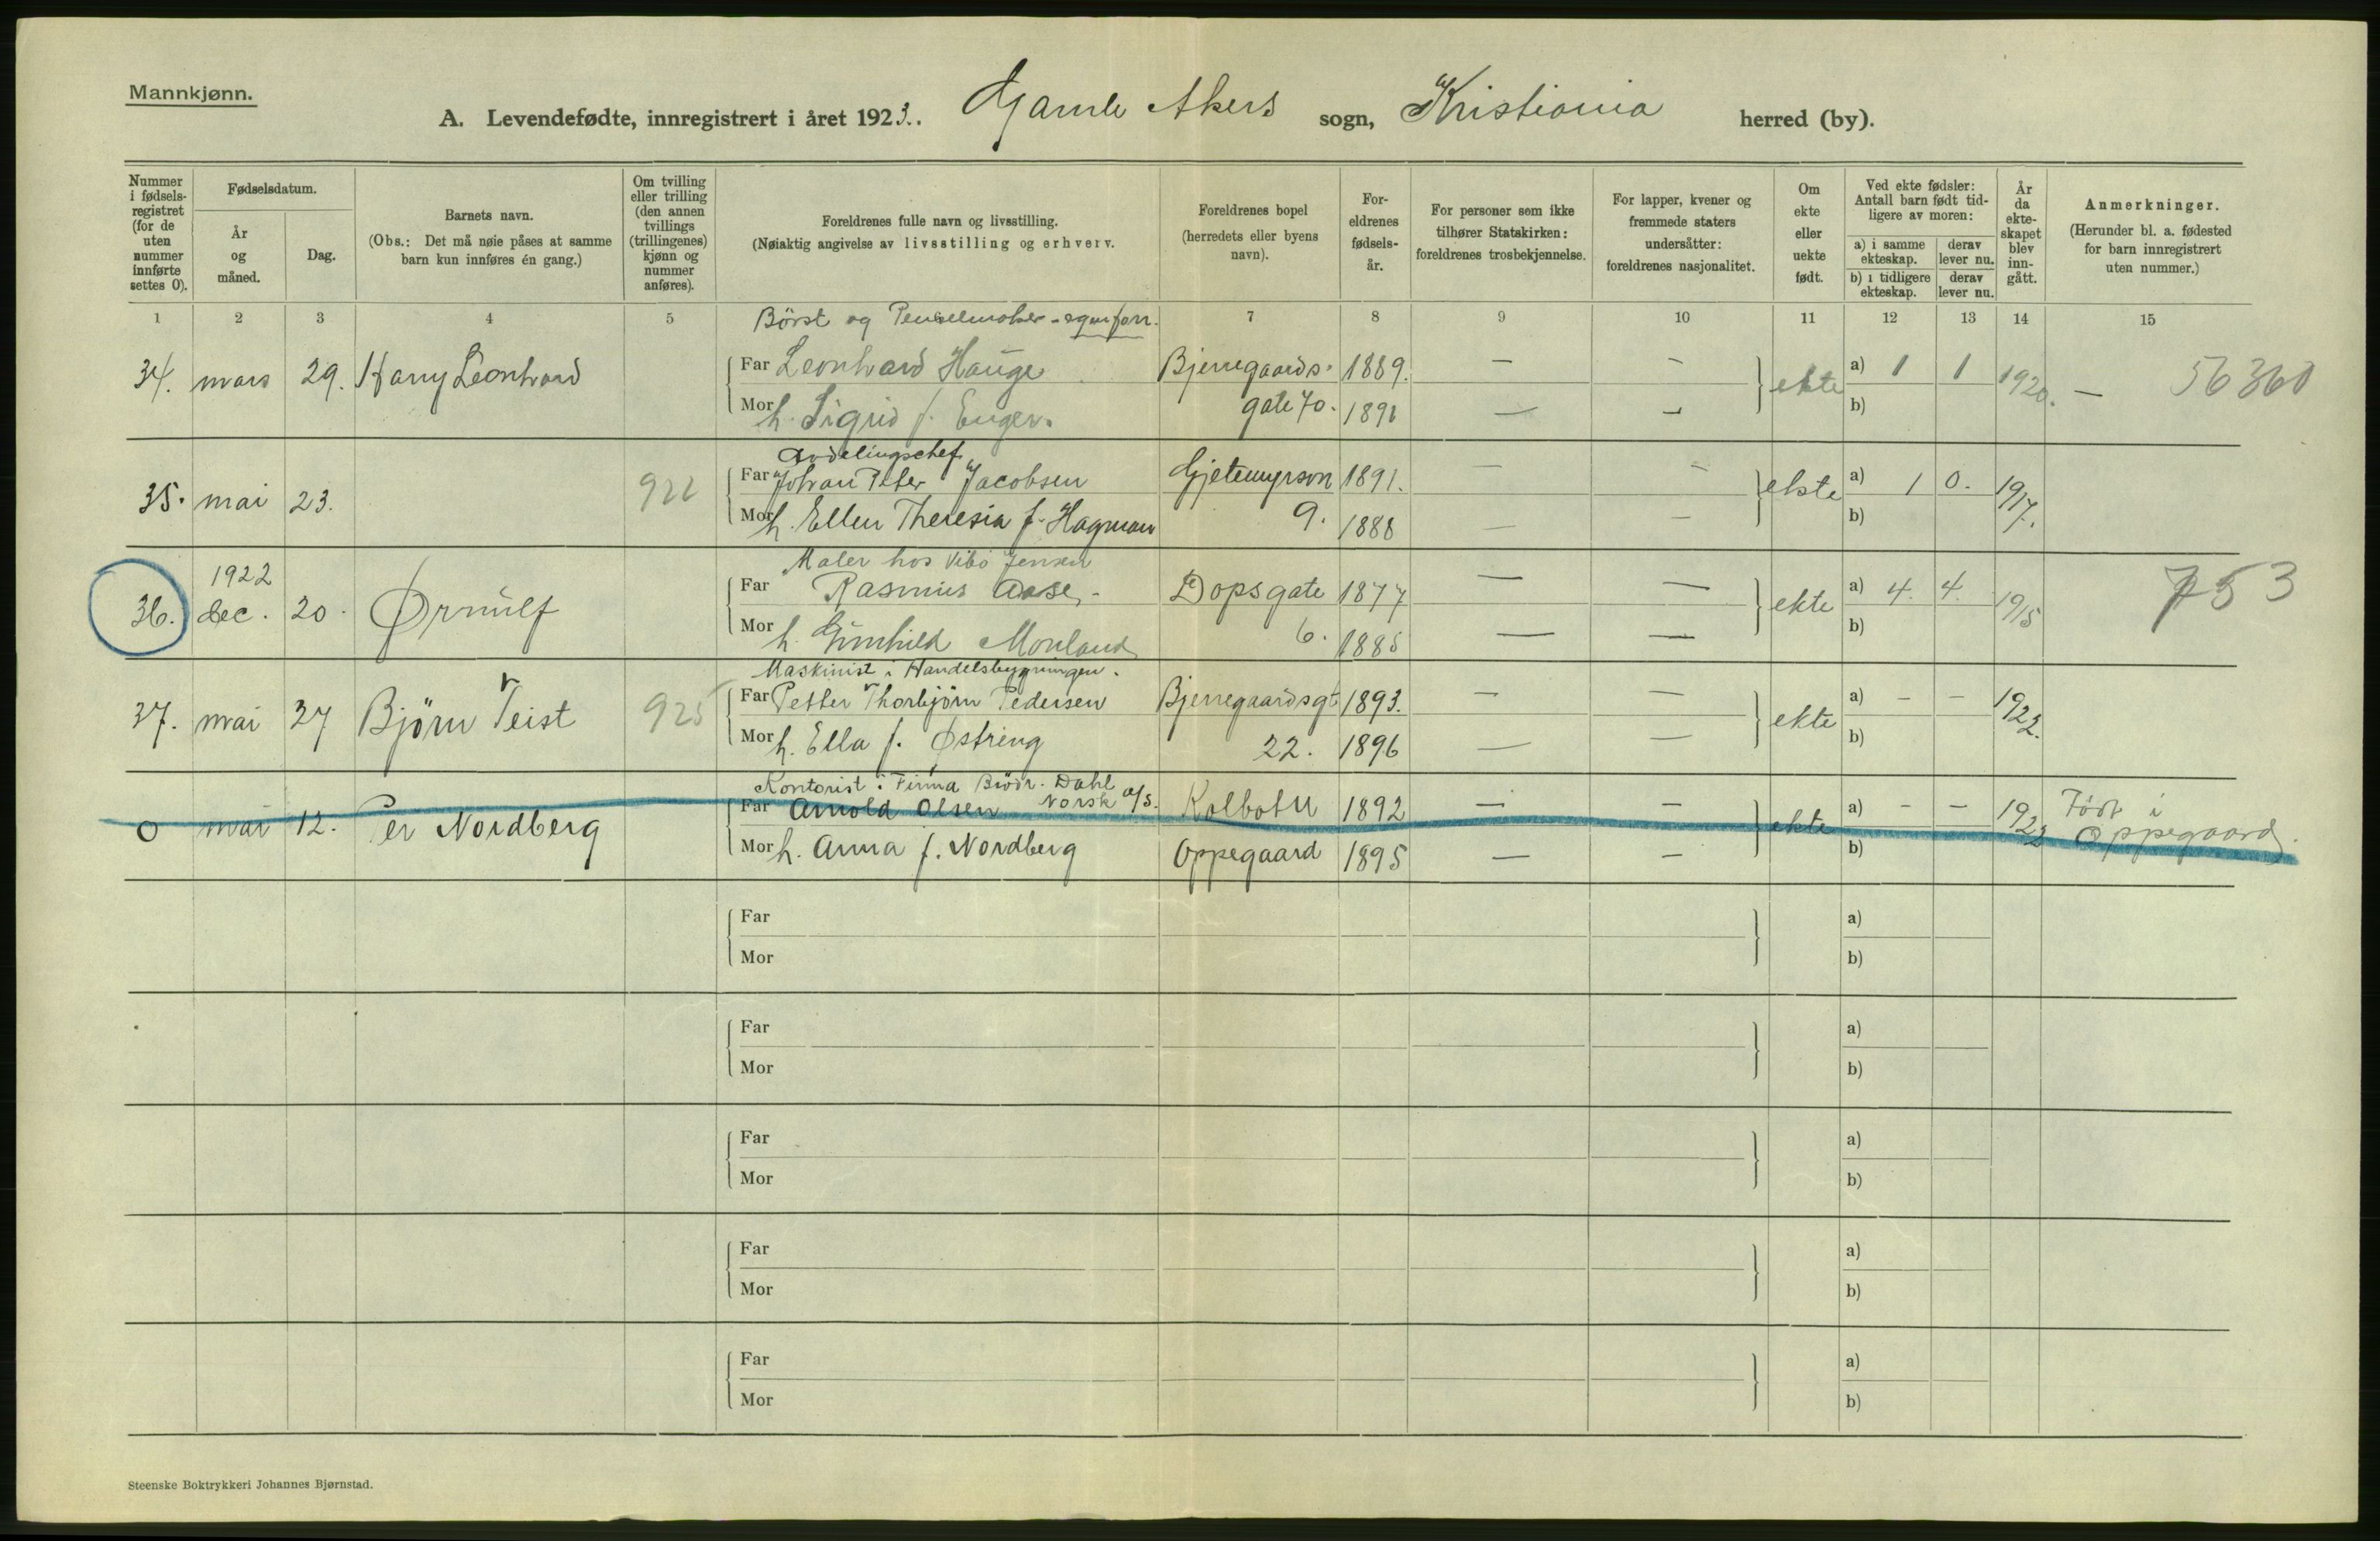 Mannkjønn.
A. Levendefødte, innregistrert i året 1923. Gamle Akers sogn, Kristiania herred (by).
Nummer i fødsels-registret (for de uten nummer innførte settes 0).
Fødselsdatum.
År og måned.
Dag.
Barnets navn.
(Obs.: Det må nøie påses at samme barn kun innføres én gang.)
Om tvilling eller trilling (den annen tvillings (trillingenes) kjønn og nummer anføres).
Foreldrenes fulle navn og livsstilling.
(Nøiaktig angivelse av livsstilling og erhverv.
Foreldrenes bopel (herredets eller byens navn).
For-eldrenes fødsels-år.
For personer som ikke tilhører Statskirken: foreldrenes trosbekjennelse.
For lapper, kvener og fremmede staters undersåtter: foreldrenes nasjonalitet.
Om ekte eller uekte født.
Ved ekte fødsler: Antall barn født tid-ligere av moren:
a) i samme ekteskap.
derav lever nu.
b) i tidligere ekteskap.
derav lever nu.
År da ekte-skapet blev inn-gått.
Anmerkninger.
(Herunder bl. a. fødested for barn innregistrert uten nummer.)
1 2 3 4 5 7 8 9 10 11 12 13 14 15
Börst og Penselmaker - egen forr.
34. mars 29. Harry Leonhard Far Leonhard Hauge Bjerregaards- 1889. — — ekte a) 1 1 1920. — 56360
Mor h. Sigrid f. Enger. gate 70. 1891 — — b)
Avdelingschef
35. mai 23. 922 Far Johan Peter Jacobsen Gjetemyrsvn 1891. — — ekte a) 1 0. 1917.
Mor h. Ellen Theresia f. Hagman 9. 1888 — — b)
Maler hos Vibo Jensen
36. 1922 dec. 20. Ørnulf Far Rasmus Aase, Dopsgate 1877 — — ekte a) 4. 4. 1915 753
Mor h. Gunhild Monland 6. 1885 — — b)
Maskinist i Handelsbygningen.
37. mai 27 Björn Teist 925 Far Petter Thorbjörn Pedersen Bjerregaardsgt 1893. — — ekte a) - - 1922.
Mor h. Ella f. Østring 22. 1896 — — b)
Kontorist i Firma Brödr. Dahl
Norsk a/s.
0 mai 12. Per Nordberg Far Arnold Olsen Kolbotn 1892 — — ekte a) - - 1922 Födt i Oppegaard.
Mor h. Anna f. Nordberg Oppegaard 1895 — — b)
Far a)
Mor b)
Far a)
Mor b)
Far a)
Mor b)
Far a)
Mor b)
Far a)
Mor b)
Steenske Boktrykkeri Johannes Bjørnstad.